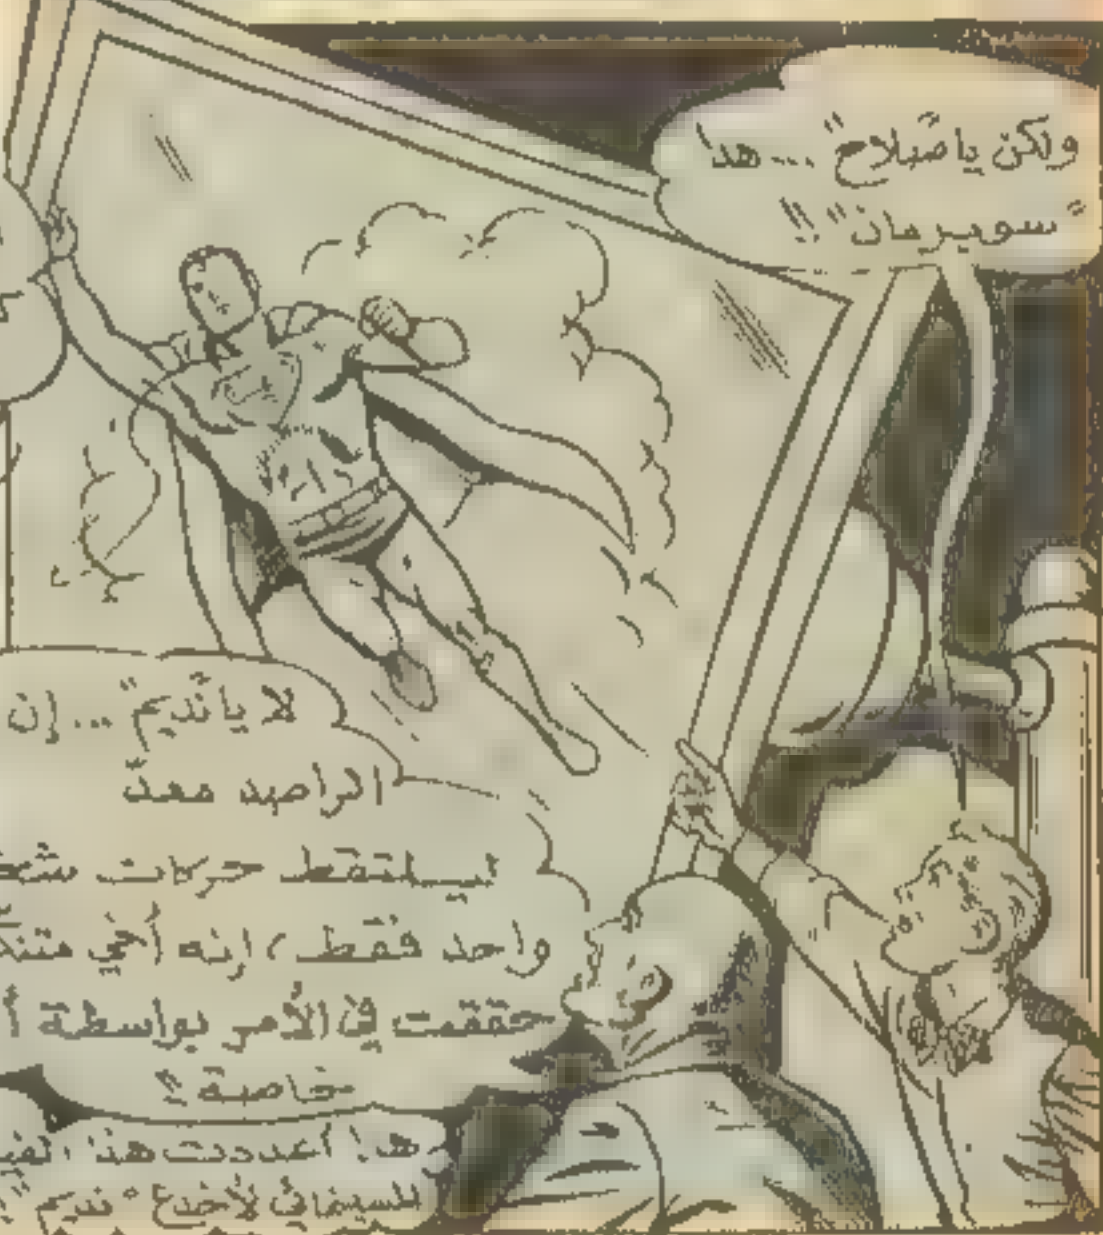 ولكن يا "صلاح" ... هذا
"سوبرمان"!!
لا يا "نديم" ... إن
الراصد معدّ
ليلتقط حركات
واحد فقط، إنه أخي
حققت في الأمر بواسطة
خاصة!!
أعددت هذا
السينمائي لأخدع "نديم"